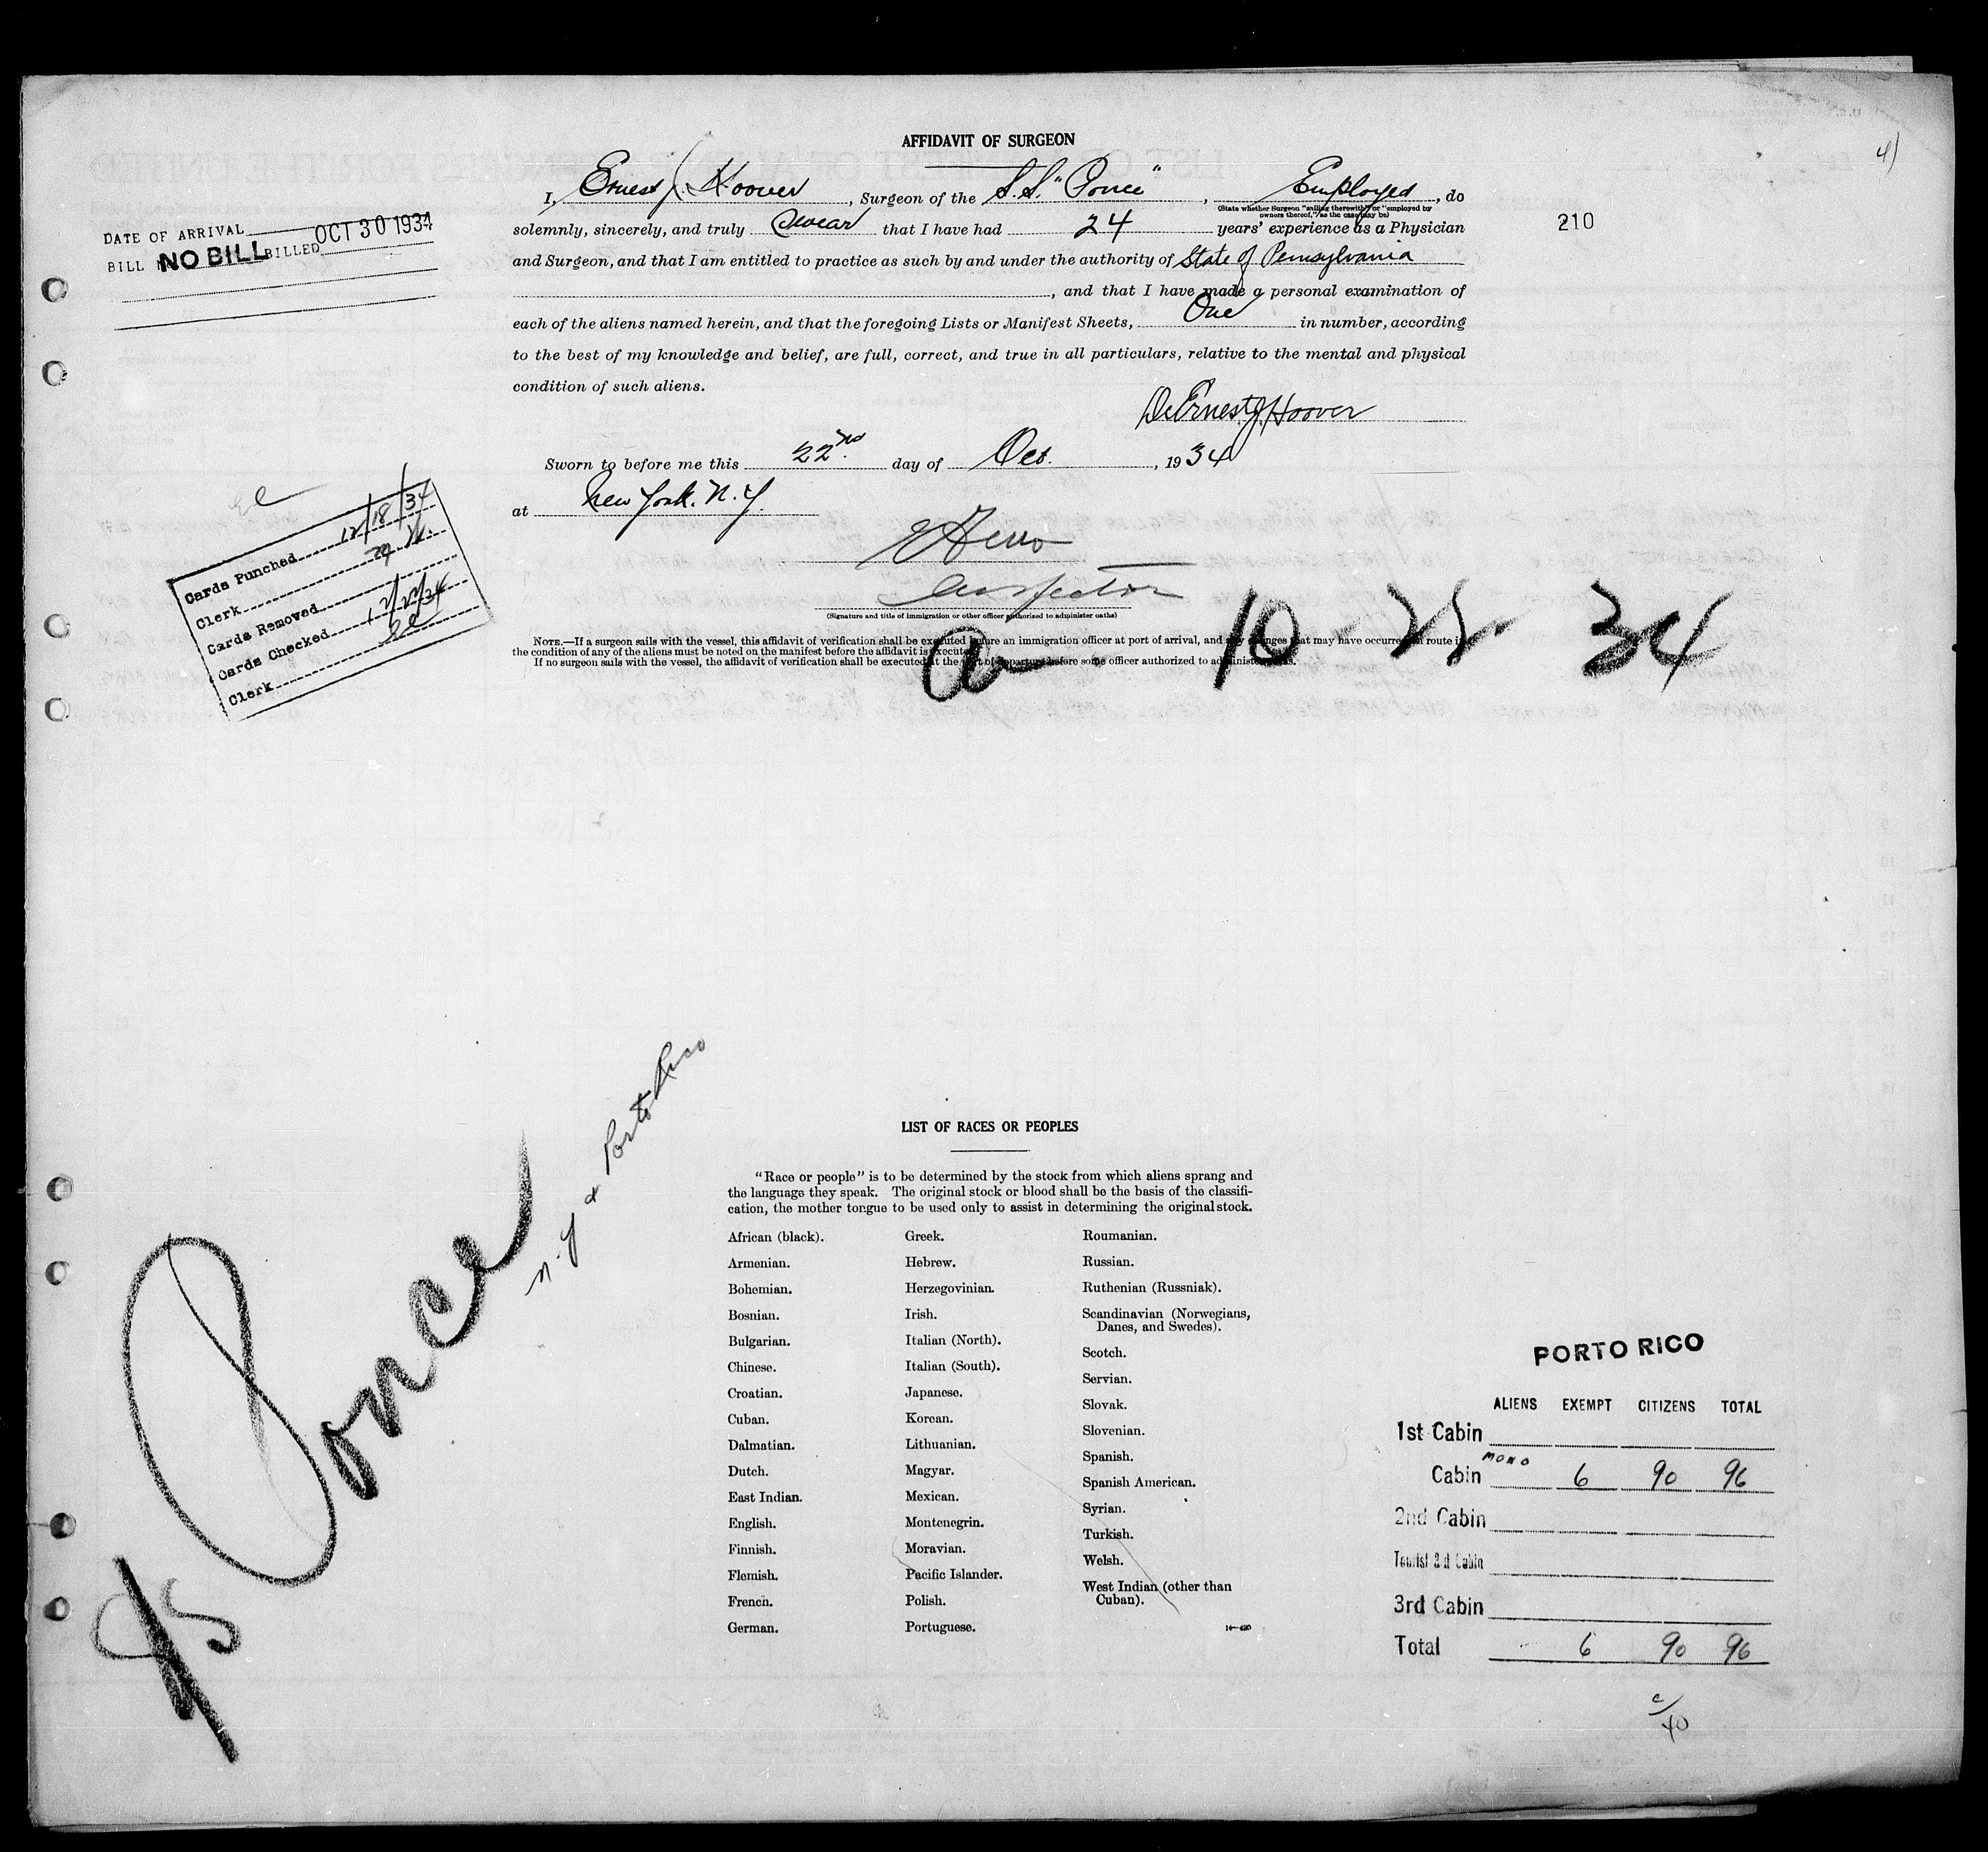 AFFIDAVIT OF SURGEON
4)
I, Ernest J. Hoover, Surgeon of the S.S. "Ponce", Employed, do
(State whether Surgeon "sailing therewith," or "employed by
owners thereof," as the case may be)
solemnly, sincerely, and truly swear that I have had 24 years' experience as a Physician
210
and Surgeon, and that I am entitled to practice as such by and under the authority of State of Pennsylvania
, and that I have made a personal examination of
each of the aliens named herein, and that the foregoing Lists or Manifest Sheets, One in number, according
to the best of my knowledge and belief, are full, correct, and true in all particulars, relative to the mental and physical
condition of such aliens.
Dr Ernest J. Hoover
Sworn to before me this 22nd. day of Oct., 1934
at New York. N.Y.
Inspector
(Signature and title of immigration or other officer authorized to administer oaths)
NOTE.—If a surgeon sails with the vessel, this affidavit of verification shall be executed before an immigration officer at port of arrival, and any changes that may have occurred en route in
the condition of any of the aliens must be noted on the manifest before the affidavit is executed.
If no surgeon sails with the vessel, the affidavit of verification shall be executed at the port of departure before some officer authorized to administer oaths.
DATE OF ARRIVAL OCT 30 1934
BILL NO BILL BILLED
Cards Punched 12/18/34
Clerk
Cards Removed
Cards Checked 12/22/34
Clerk
34
Ponce
N.Y & Porto Rico
LIST OF RACES OR PEOPLES
"Race or people" is to be determined by the stock from which aliens sprang and
the language they speak. The original stock or blood shall be the basis of the classifi-
cation, the mother tongue to be used only to assist in determining the original stock.
African (black).
Armenian.
Bohemian.
Bosnian.
Bulgarian.
Chinese.
Croatian.
Cuban.
Dalmatian.
Dutch.
East Indian.
English.
Finnish.
Flemish.
French.
German.
Greek.
Hebrew.
Herzegovinian.
Irish.
Italian (North).
Italian (South).
Japanese.
Korean.
Lithuanian.
Magyar.
Mexican.
Montenegrin.
Moravian.
Pacific Islander.
Polish.
Portuguese.
Roumanian.
Russian.
Ruthenian (Russniak).
Scandinavian (Norwegians,
Danes, and Swedes).
Scotch.
Servian.
Slovak.
Slovenian.
Spanish.
Spanish American.
Syrian.
Turkish.
Welsh.
West Indian (other than
Cuban).
PORTO RICO
ALIENS EXEMPT CITIZENS TOTAL
1st Cabin
Cabin 6 90 96
2nd Cabin
Tourist 3d Cabin
3rd Cabin
Total 6 90 96